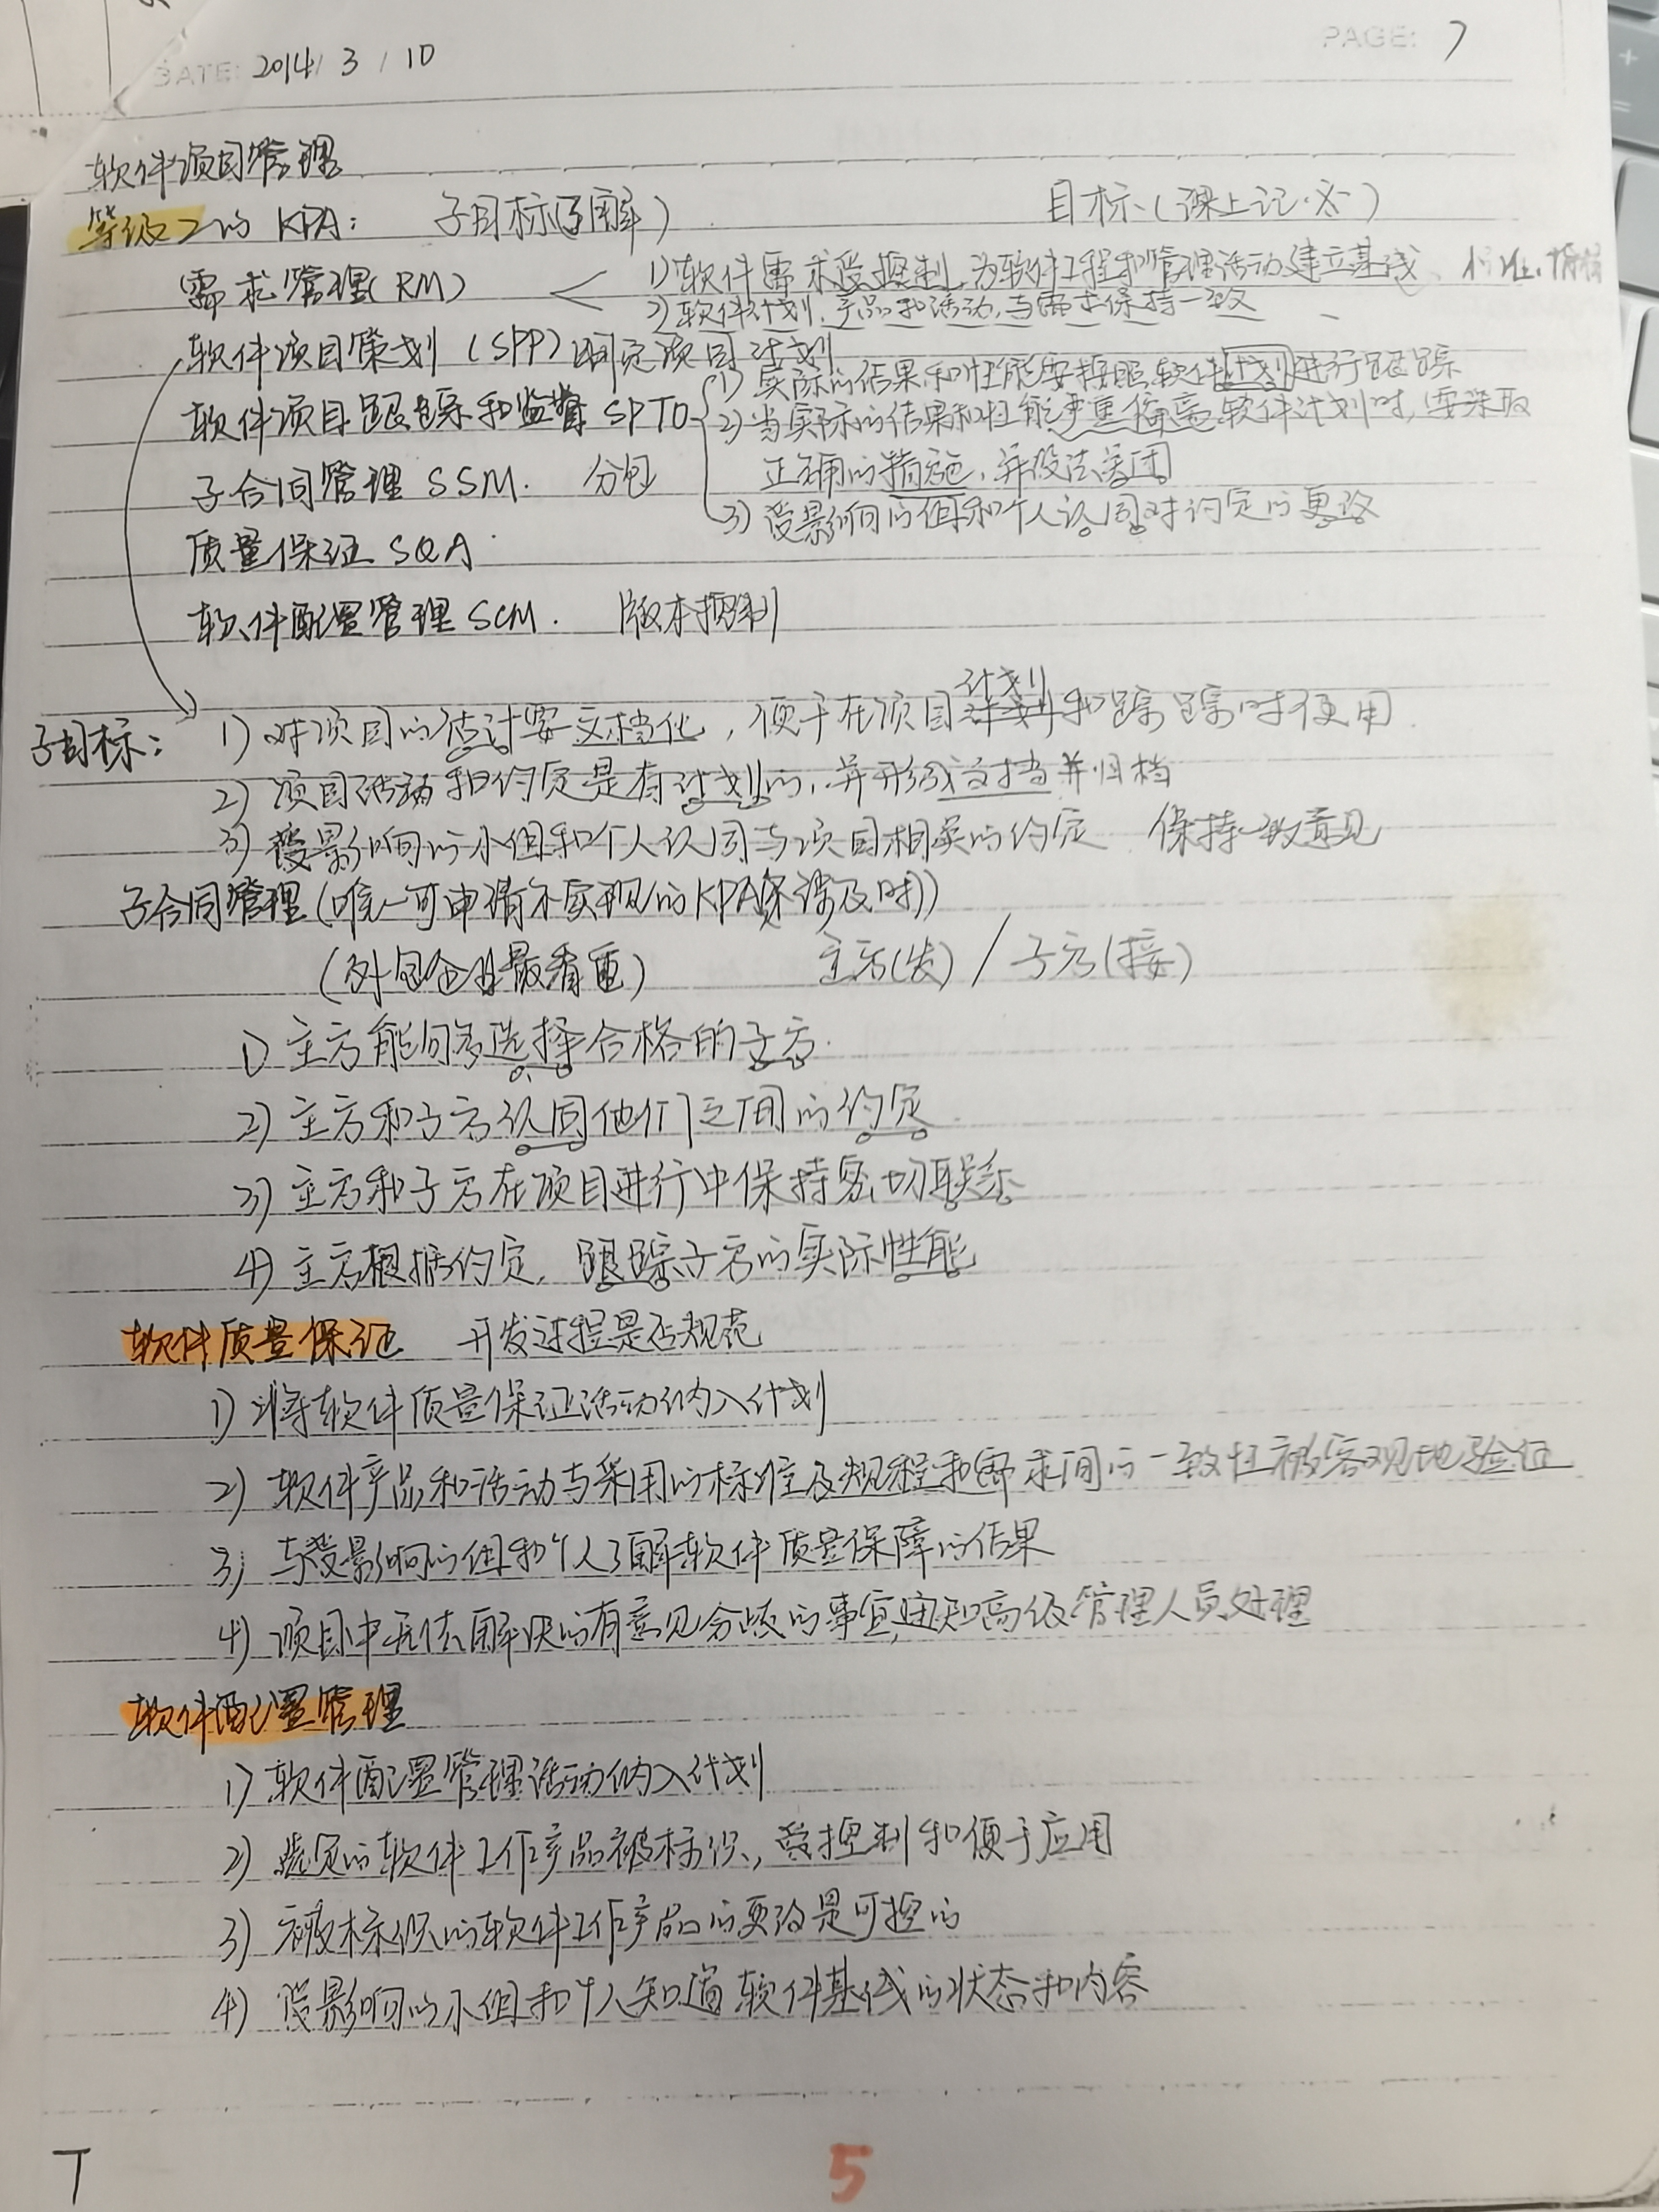 DATE: 2014 / 3 / 10
PAGE: 7
软件项目管理
等级2的 KPA: 子目标(了解) 目标(课上记忆)
需求管理(RM) < 1) 软件需求受控制,为软件工程和管理活动建立基线、标准、
2) 软件计划,产品和活动,与需求保持一致
软件项目策划 (SPP) 制定项目计划
软件项目跟踪和监督 SPTO 1) 实际的结果和性能要按照软件计划进行跟踪
2) 当实际的结果和性能严重偏离软件计划时,要采取
正确的措施,并设法关闭
3) 受影响的组和个人认同对约定的更改
子合同管理 SSM. 分包
质量保证 SQA.
软件配置管理 SCM. 版本控制
计划
子目标: 1) 对项目的估计要文档化,便于在项目计划和跟踪时使用.
2) 项目活动和约定是有计划的,并形成文档并归档
3) 受影响的小组和个人认同与项目相关的约定 保持一致意见
子合同管理(唯一可申请不实现的KPA(不涉及时))
(外包企业最看重) 主方(发) / 子方(接)
1) 主方能够选择合格的子方.
2) 主方和子方认同他们之间的约定.
3) 主方和子方在项目进行中保持密切联系
4) 主方根据约定,跟踪子方的实际性能
软件质量保证 开发过程是否规范
1) 将软件质量保证活动纳入计划
2) 软件产品和活动与采用的标准及规程和需求间的一致性被客观地验证
3) 与受影响的组和个人了解软件质量保障的结果
4) 项目中无法解决的有意见分歧的事宜,通知高级管理人员处理
软件配置管理
1) 软件配置管理活动纳入计划
2) 选定的软件工作产品被标识,受控制和便于应用
3) 被标识的软件工作产品的更改是可控的
4) 受影响的小组和个人知道软件基线的状态和内容
T
5